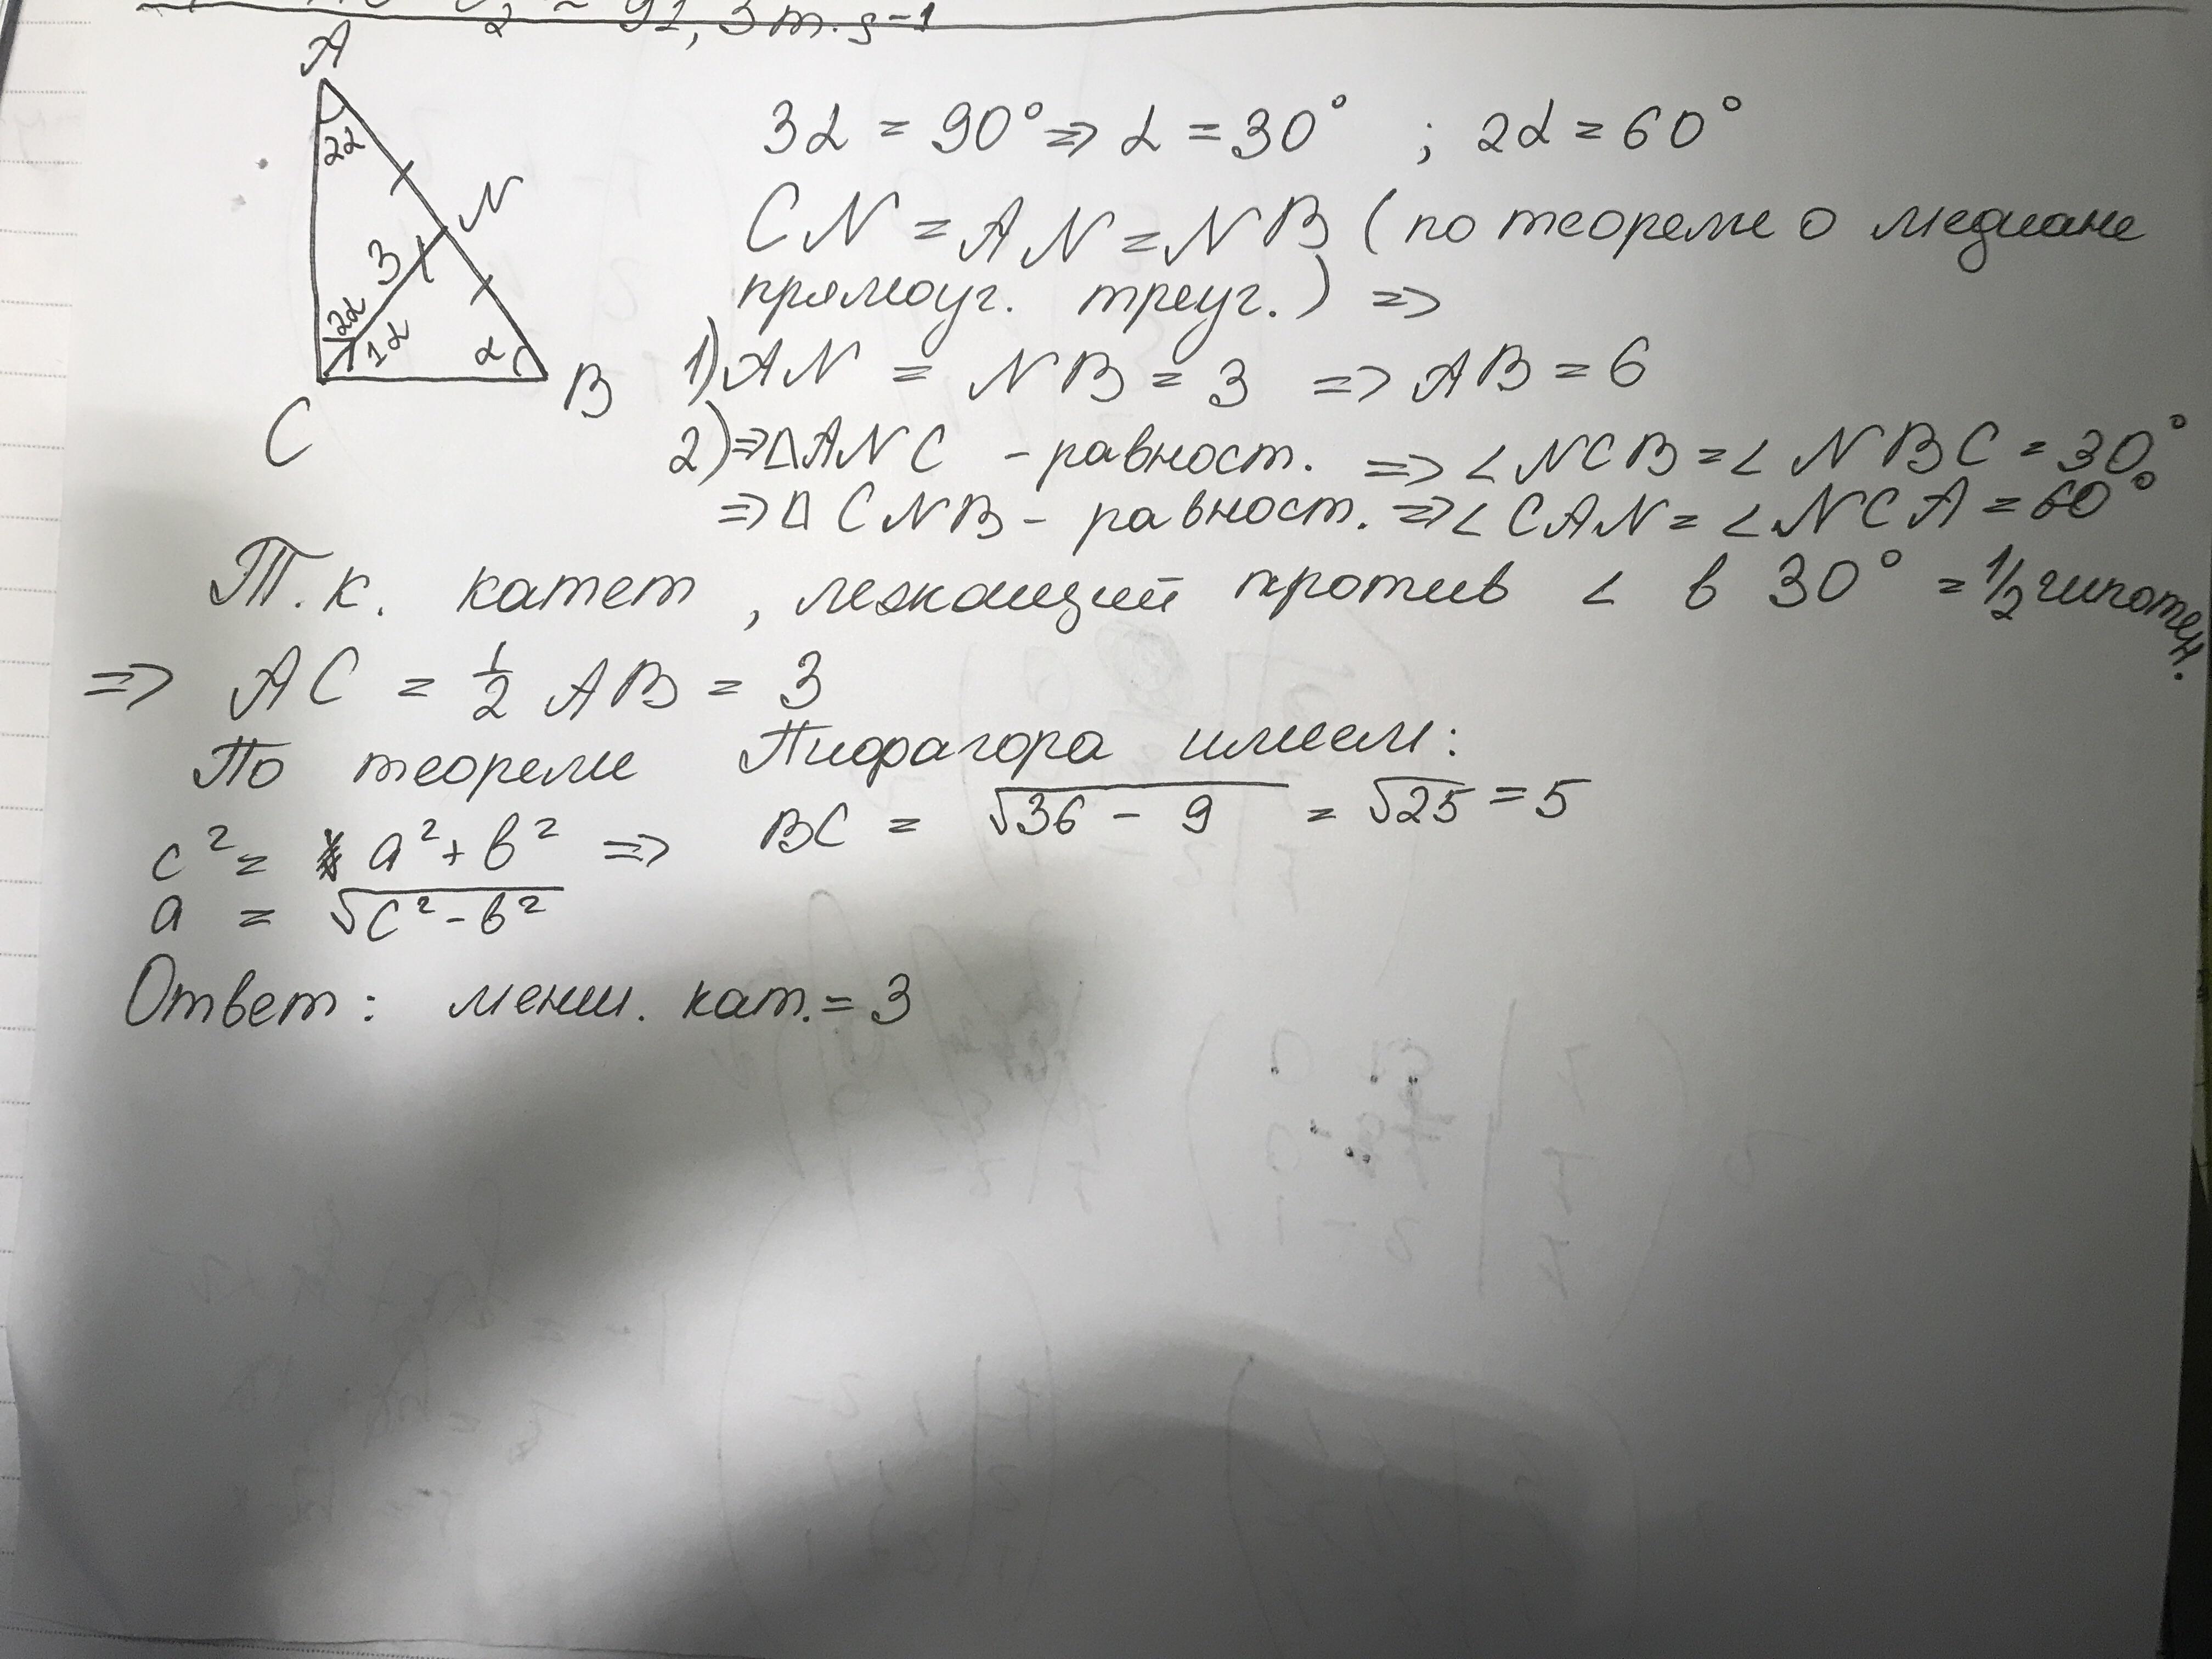 2 ~ 91,3 m.s-1
A
2α
N
3
2α
1α
α
C
B
3α = 90° => α = 30° ; 2α = 60°
CN = AN = NB (по теореме о медиане
прямоуг. треуг.) =>
1) AN = NB = 3 => AB = 6
2) => ΔANC - равност. => ∠NCB = ∠NBC = 30°
=> Δ CNB - равност. => ∠CAN = ∠NCA = 60°
Т.к. катет, лежащий против ∠ в 30° = 1/2 гипотен.
=> AC = 1/2 AB = 3
По теореме Пифагора имеем:
c² = a² + b² => BC = √36 - 9 = √25 = 5
a = √c² - b²
Ответ: меньш. кат. = 3